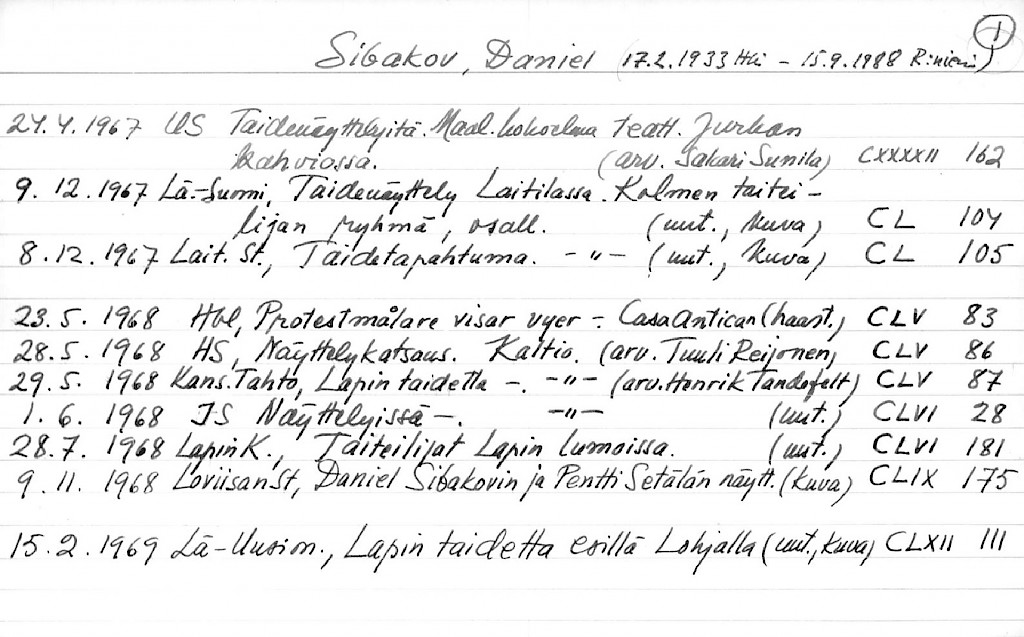 1
Sibakov, Daniel (17.2.1933 Hki - 15.9.1988 R:niemi)
24.4.1967 US Taidenäyttelyitä. Maal.kokoelma teatt. Jurkan
kahviossa. (arv. Sakari Sunila) CXXXXII 162
9.12.1967 Lä-Suomi, Taidenäyttely Laitilassa. Kolmen taitei-
lijan ryhmä, osall. (uut., kuva) CL 104
8.12.1967 Lait. St., Taidetapahtuma. - " - (uut., kuva) CL 105
23.5.1968 Hbl, Protestmålare visar vyer - Casa Antican (haast.) CLV 83
28.5.1968 HS, Näyttelykatsaus. Kaltio. (arv. Tuuli Reijonen) CLV 86
29.5.1968 Kans.Tahto, Lapin taidetta -. - " - (arv. Henrik Tandefelt) CLV 87
1.6.1968 IS Näyttelyissä -. - " - (uut.) CLVI 28
28.7.1968 Lapin K., Taiteilijat Lapin lumoissa. (uut.) CLVI 181
9.11.1968 Loviisan St, Daniel Sibakovin ja Pentti Setälän näytt. (kuva) CLIX 175
15.2.1969 Lä-Uusim., Lapin taidetta esillä Lohjalla (uut., kuva) CLXII 111